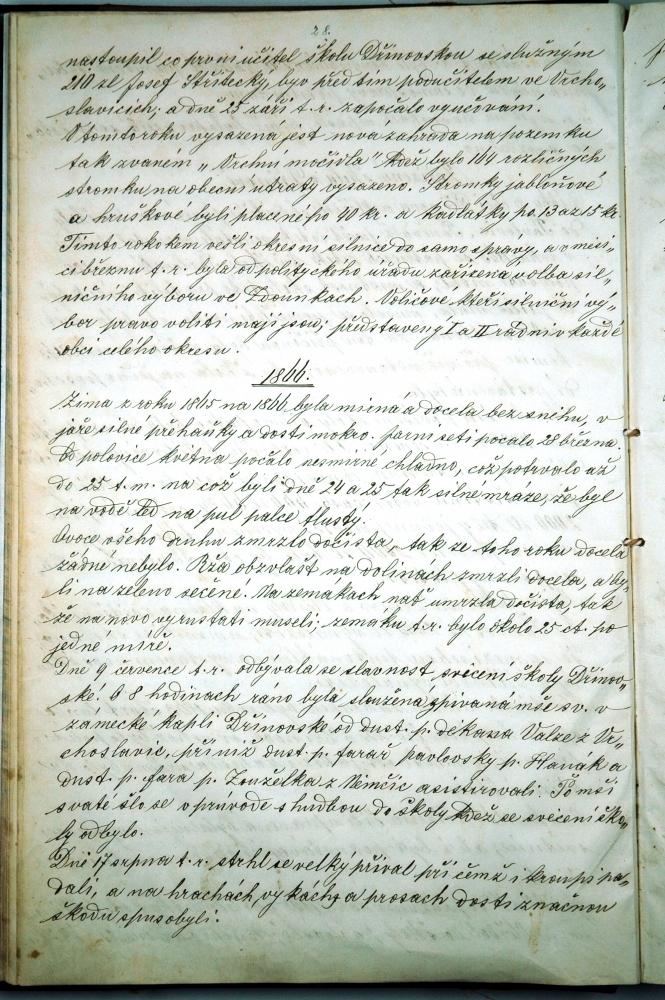 28.
nastoupil co první učitel školu Dřínovskou se služným
210 zl Josef Střítecký, byv před tím podučitelem ve Vrcho„
slavicích; a dně 25 září t. r. započalo vyučování.
V tomto roku vysazena jest nova zahrada na pozemku
tak zvanem „Vrchní močidla" kdež bylo 164 rozličných
stromku na obecní utraty vysazeno. Stromky jabloňové
a hruškové byli placené po 40 kr. a Kadlátky po 13 az 15 kr.
Tímto rokokem vešli okresní silnice do samosprávy, a v mísí„
ci březnu t. r. byla od polityckého úřadu zařízena volba sil„
ničního výboru ve Zdounkach. Voličové kteří silniční vý„
bor pravo voliti mají jsou; představený I a II radní v každé
obci celého okresu.
1866.
Zima z roku 1865 na 1866 byla mírná a docela bez sněhu, v
jaře silné přeháňky a dosti mokro. jarní setí počalo 28 března.
Od polovice května počálo nesmírné chladno, což potrvalo až
do 25 t. m. na což byli dně 24 a 25 tak silné mráze, že byl
na vodě led na pul palce tlustý.
Ovoce všeho druhu zmrzlo dočista, tak ze toho roku docela
žádné nebylo. Rža obzvlašť na dolinách zmrzli docela, a by„
li na zeleno sečéne. Na zemákach nať umrzla dočista, tak
že na novo vyrustati museli; zemáku t. r. bylo okolo 25 ct. po
jedné míře.
Dně 9 července t. r. odbývala se slavnost svěcení školy Dřínov„
ské. O 8 hodinach ráno byla sloužená zpívaná mše sv. v
zámecke kapli Dřínovske od dust. p. děkana Valze z Vr„
choslavic, při níž dust. p. farař pavlovsky p. Hanak a
dust. p. fara p. Zouželka z Němčic asistirovali. Po mši
svaté šlo se v průvode s hudbou do školy kdež se svecení ško„
ly odbylo.
Dně 17 srpna t. r. strhl se velký příval při čemž i kroupi pa„
dali, a na hrachach, vykách, a prosach dosti značnou
škodu spusobyli.